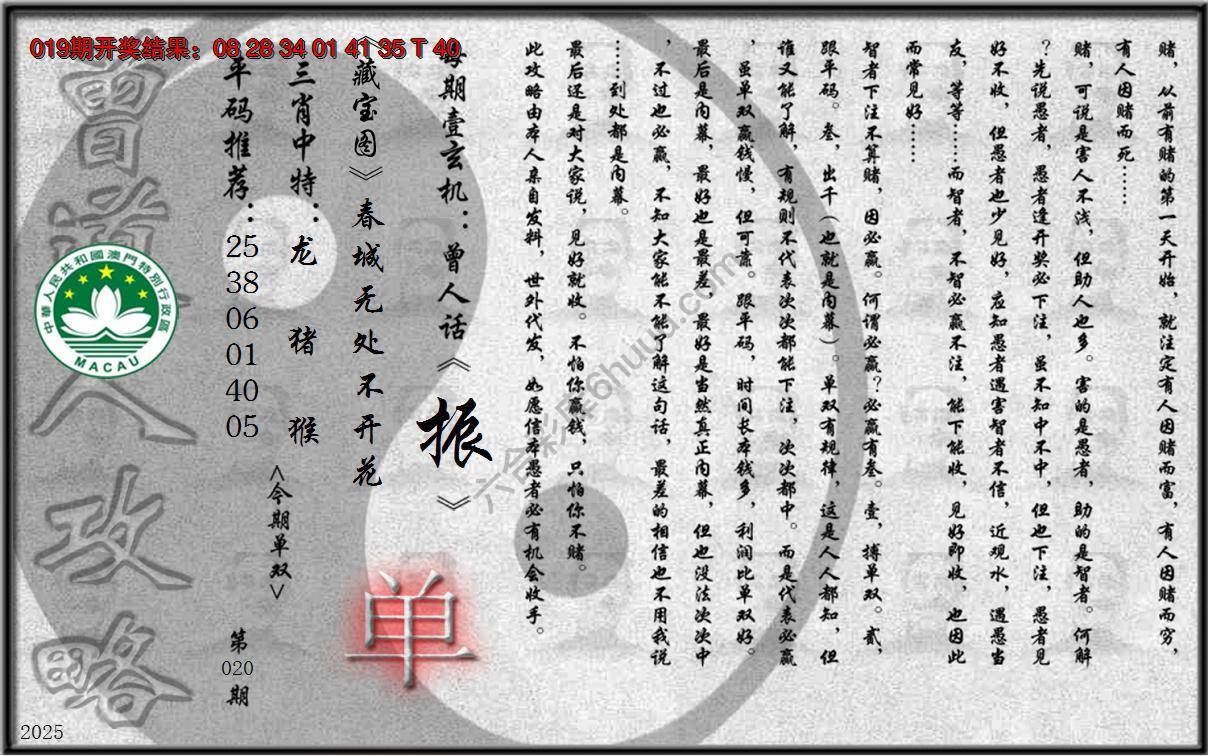 019期开奖结果：08 28 34 01 41 35 T 40
赌，从前有赌的第一天开始，就注定有人因赌而富，有人因赌而穷，
有人因赌而死……
赌，可说是害人不浅，但助人也多。害的是愚者，助的是智者。何解
？先说愚者，愚者逢开奖必下注，虽不知中不中，但也下注，愚者见
好不收，但愚者也少见好，应知愚者遇害智者不信，近观水，遇愚当
友，等等……而智者，不智必赢不注，能下能收，见好即收，也因此
而常见好……
智者下注不算赌，因必赢。何谓必赢？必赢有叁。壹，搏单双。贰，
跟平码。叁，出千（也就是内幕）。单双有规律，这是人人都知，但
谁又能了解，有规则不代表次次都能下注，次次都中。而是代表必赢
，虽单双赢钱慢，但可靠。跟平码，时间长本钱多，利润比单双好。
最后是内幕，最好也是最差，最好是当然真正内幕，但也没法次次中
，不过也必赢，不知大家能不能了解这句话，最差的相信也不用我说
……到处都是内幕。
最后还是对大家说，见好就收。不怕你赢钱，只怕你不赌。
此攻略由本人亲自发料，世外代发，如愿信本愚者必有机会收手。
每期壹玄机：曾人话《振》
《藏宝图》春城无处不开花
三肖中特：龙 猪 猴
平码推荐：25 38 06 01 40 05
<今期单双>
单
第020期
曾道人攻略
中華人民共和國澳門特別行政區
MACAU
六合彩库6huu.com
2025